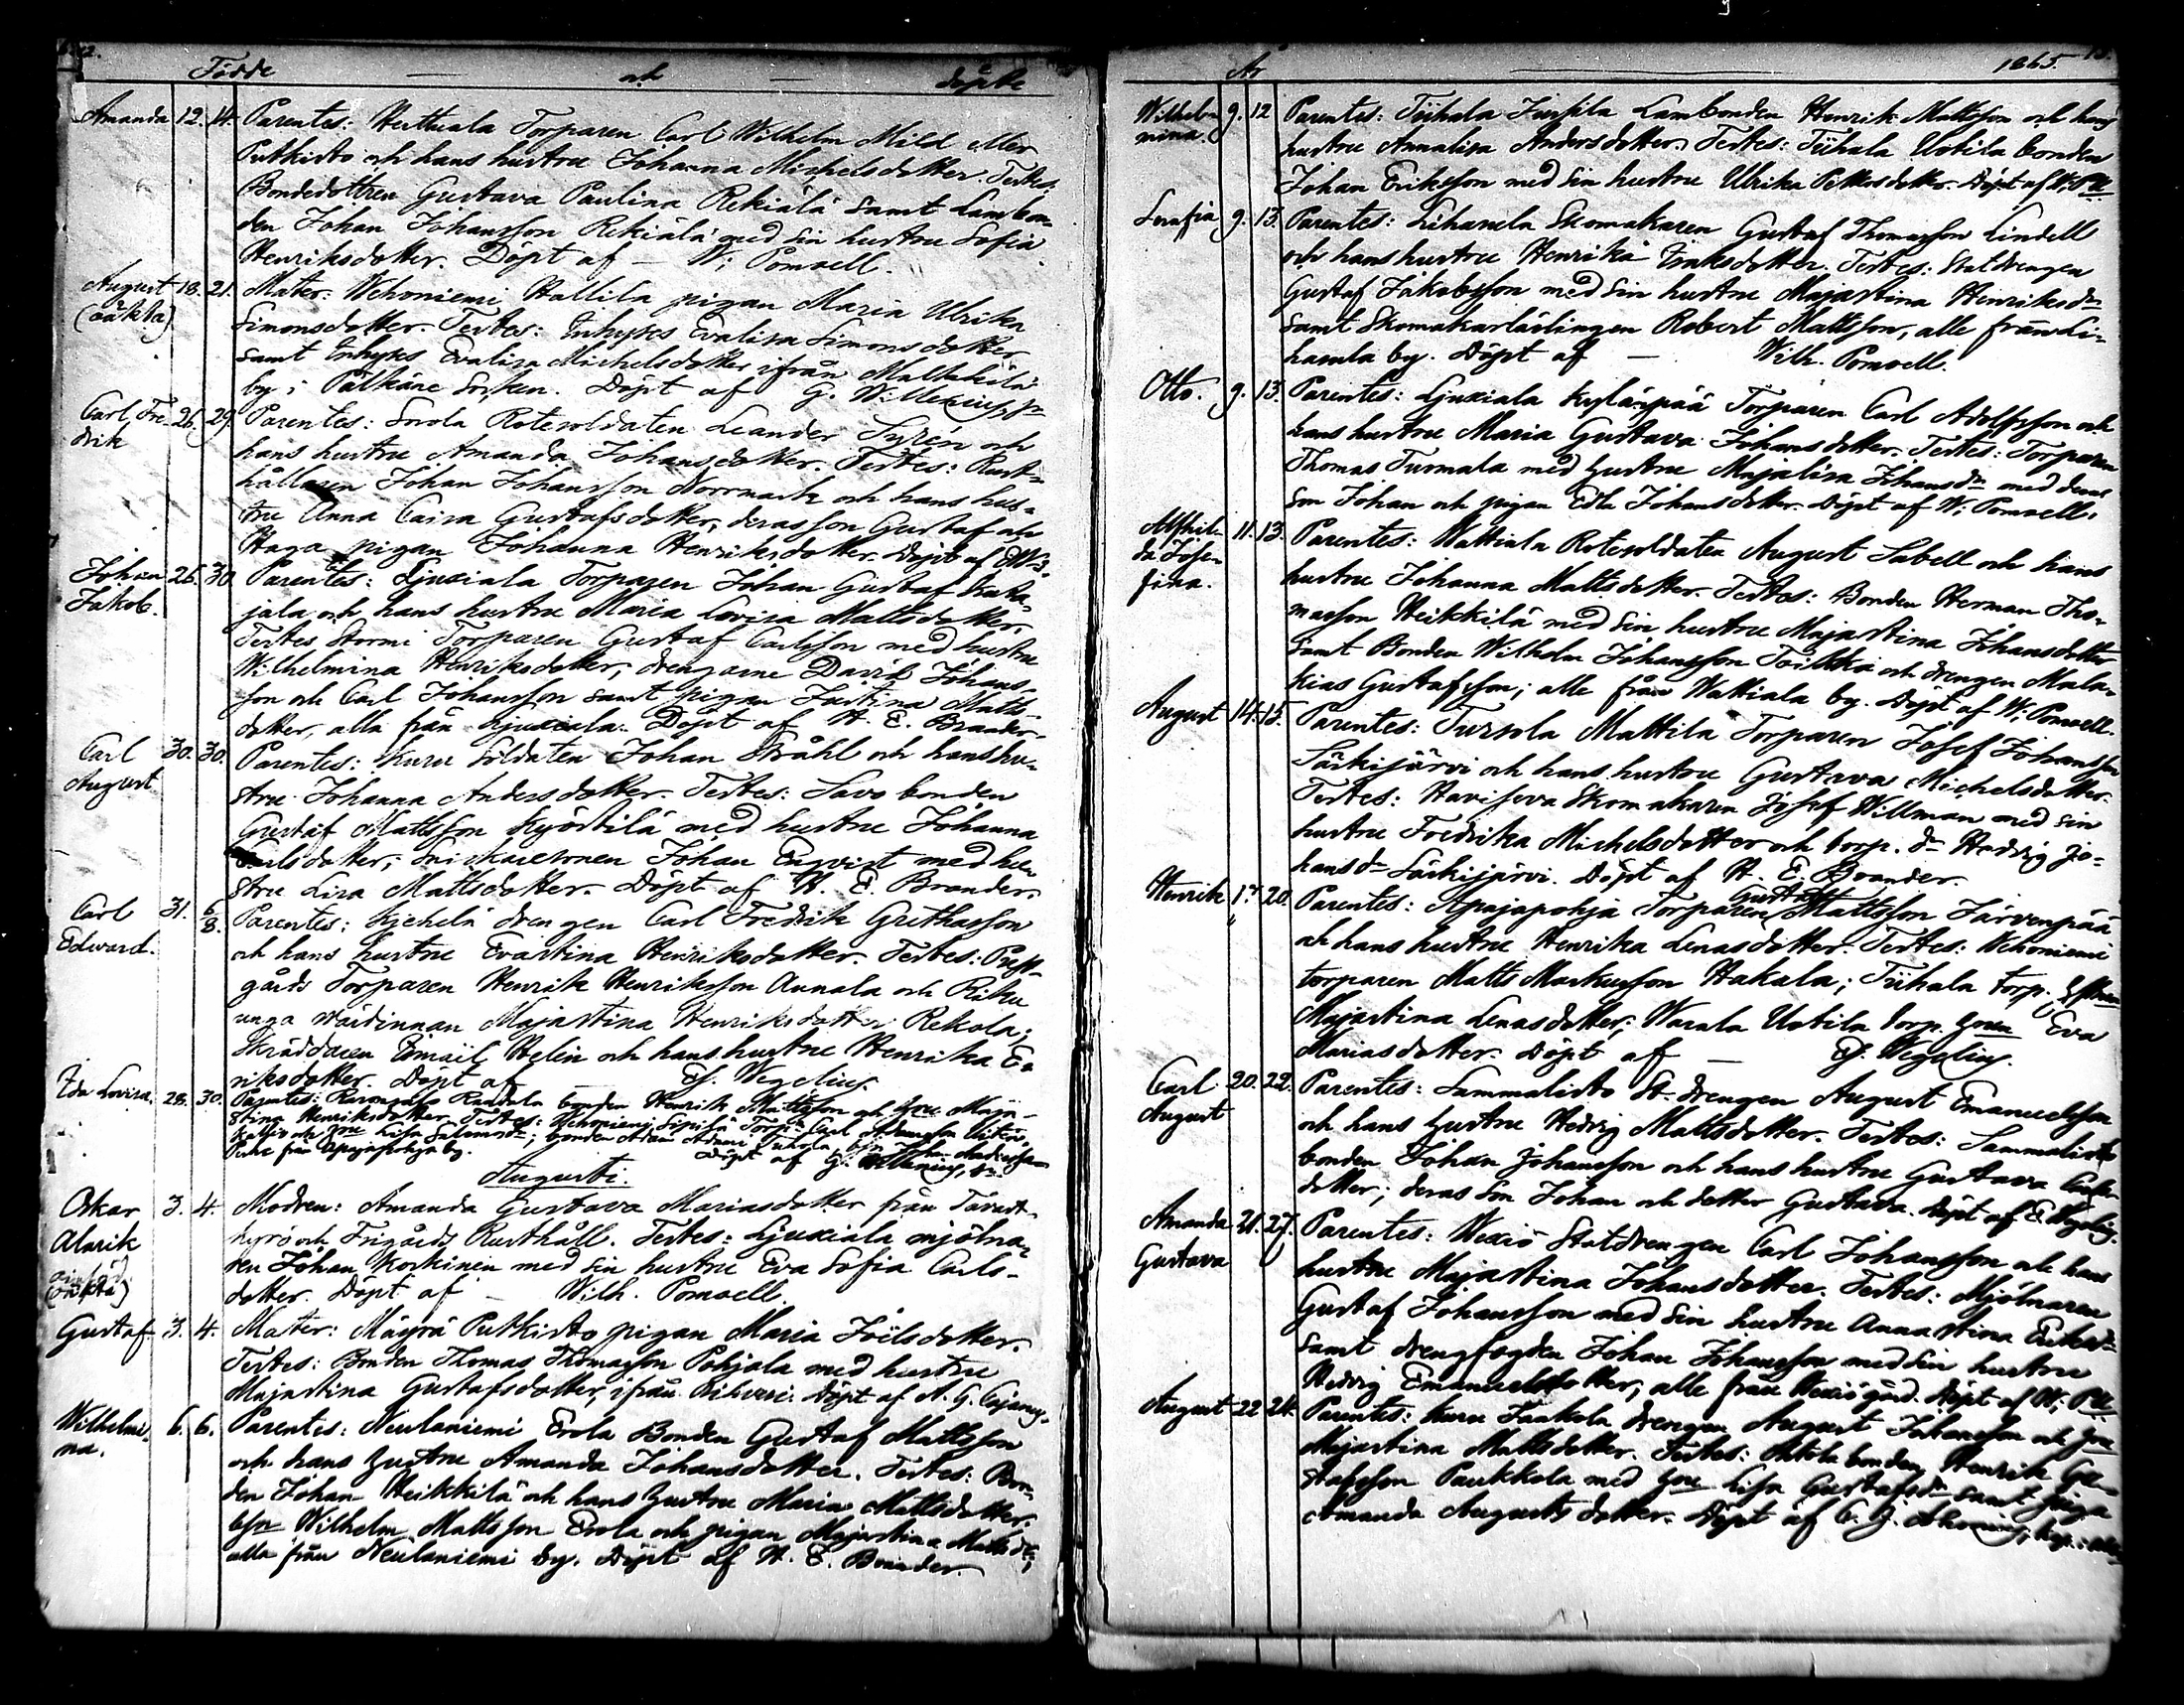 Födde — och — döpte
Amanda 12. 14. Parentes: Herttuala Torparen Carl Wilhelm Mild eller
Putkisto och hans hustru Johanna Michelsdotter. Testes:
Bondedottren Gustava Paulina Rekiälä samt Lambon-
den Johan Johansson Rekiälä med sin hustru Sofia
Henriksdotter. Döpt af — W; Pomoell.
August (oäkta) 18. 21. Mater: Wehoniemi Hallila pigan Maria Ulrika
Simonsdotter. Testes: Inhyses Evalisa Simonsdotter
samt Inhyses Evalisa Michelsdotter ifrån
by i Pälkäne Socken. Döpt af G.
Carl Fre-
drik 26. 29. Parentes: Sorola Rotesoldaten Leander Syrén och
hans hustru Amanda Johansdotter. Testes: Rust-
hållaren Johan Johansson Norrmark och hans hus-
tru Anna Caisa Gustafsdotter, deras son Gustaf och
Haga pigan Johanna Henriksdotter. Döpt af
Johan
Jakob. 26. 30. Parentes: Ljuxiala Torparen Johan Gustaf
jala och hans hustru Maria Lovisa Mattsdotter.
Testes Stormi Torparen Gustaf Carlsson med hustru
Wilhelmina Henriksdotter, drengarne David Johans-
son och Carl Johansson samt pigan Justina Matts-
dotter, alla från Ljuxiala. Döpt af H. E. Brander.
Carl
August 30. 30. Parentes: Kuru Soldaten Johan Stråhl och hans hu-
stru Johanna Andersdotter. Testes: Savo bonden
Gustaf Mattsson Kyöstilä med hustru Johanna
Carlsdotter; Snickaresonen Johan Enqvist med hu-
stru Lisa Mattsdotter. Döpt af H. E. Brander.
Carl
Edward. 31. 6/8. Parentes: drengen Carl Fredrik Grethasson
och hans hustru Evastina Henriksdotter. Testes: Prest-
gårds Torparen Henrik Henriksson Annala och Riku
unga värdinnan Majastina Henriksdotter Rekola;
Skräddaren Ismail Helin och hans hustru Henrika E-
riksdotter. Döpt af — E. Wegelius.
Ida Lovisa. 28. 30. Parentes: bonden Henrik Mattsson och hru Maja-
stina Henriksdotter. Testes: Wehoniemi
från Apajapohja by. Döpt af G.
Augusti.
Oskar
Alarik
(oäkta) 3. 4. Modren: Amanda Gustava Mariasdotter från Tavast-
kyrö och Frigårds Rusthåll. Testes: Ljuxiala mjölna-
ren Johan Korkinen med sin hustru Eva Sofia Carls-
dotter. Döpt af — Wilh. Pomoell.
Gustaf 3. 4. Mater: Mäyrä Putkisto pigan Maria Joelsdotter.
Testes: Bonden Thomas Thomasson Pohjala med hustru
Majastina Gustafsdotter, ifrån Rihvari. Döpt af A. G. Cajanus.
Wilhelmi-
na. 6. 6. Parentes: Neulaniemi Erola Bonden Gustaf Mattsson
och hans hustru Amanda Johansdotter. Testes: Bon-
den Johan Heikkilä och hans hustru Maria Mattsdotter.
bson Wilhelm Mattsson Erola och pigan Majastina Mattsdr;
alla från Neulaniemi by. Döpt af H. E. Brander.
År — 1865.
Wilhel-
mina. 9. 12 Parentes: Tiihala Lambonden Henrik Mattsson och hans
hustru Annalisa Andersdotter. Testes: Tiihala Uotila bonden
Johan Eriksson med sin hustru Ulrika Pettersdotter. Döpt af W. Pll
Serafia 9. 13. Parentes: Lihasula Skomakaren Gustaf Thomasson Lindell
och hans hustru Henrika Isaksdotter. Testes: Statdrengen
Gustaf Jakobsson med sin hustru Majastina Henriksdr
samt Skomakarlärlingen Robert Mattsson, alle från Li-
hasula by. Döpt af — Wilh. Pomoell.
Otto. 9. 13. Parentes: Ljuxiala Kylänpää Torparen Carl Adolfsson och
hans hustru Maria Gustava Johansdotter. Testes: Torparen
Thomas Turmala med hustru Majalisa Johansdr med deras
son Johan och pigan Edla Johansdotter. Döpt af W; Pomoell.
Alfhil-
da Jose-
fina. 11. 13. Parentes: Wattiala Rotesoldaten August Sabell och hans
hustru Johanna Mattsdotter. Testes: Bonden Herman Tho-
masson Heikkilä med sin hustru Majastina Johansdotter
samt Bonden Wilhelm Johansson Toikka och drengen Mala-
kias Gustafsson; alle från Wattiala by. Döpt af W. Pomoell.
August 14. 15. Parentes: Tursola Mattila Torparen Josef Johansson
Särkijärvi och hans hustru Gustava Michelsdotter.
Testes: Havisova Skomakaren Josef Willman med sin
hustru Fredrika Michelsdotter och torp. dr Hedvig Jo-
hansdr Särkijärvi. Döpt af H. E. Brander.
Henrik 17. 20. Parentes: Apajapohja Torparen Gustaf Mattsson Järvenpää
och hans hustru Henrika Lenasdotter. Testes: Wehoniemi
torparen Matts Markusson Hakala; Tiihala torp.
Majastina Lenasdotter; Warala Uotila torp. hrun Eva
Mariasdotter. Döpt af — E. Wegelius.
Carl
August 20. 22. Parentes: Sammalisto St. drengen August Emanuelsson
och hans hustru Hedvig Mattsdotter. Testes: Sammalisto
bonden Johan Johansson och hans hustru Gustava Carls-
dotter; deras son Johan och dotter Gustava. Döpt af E. Wegelius.
Amanda
Gustava 21. 27. Parentes: Wexiö Statdrengen Carl Johansson och hans
hustru Majastina Johansdotter. Testes: Mjölnaren
Gustaf Johansson med sin hustru Annastina Eriksdr
samt drengfogden Johan Johansson med sin hustru
Hedvig Emanuelsdotter, alle från Wexiö gård. Döpt af W. Pll
August 22 24. Parentes: Kuru Jaakola drengen August Johansson och hru
Majastina Mattsdotter. Testes: bonden Henrik Gu-
stafsson Paukkola med hru Lisa Gustafsdr samt piga
Amanda Augustsdotter. Döpt af